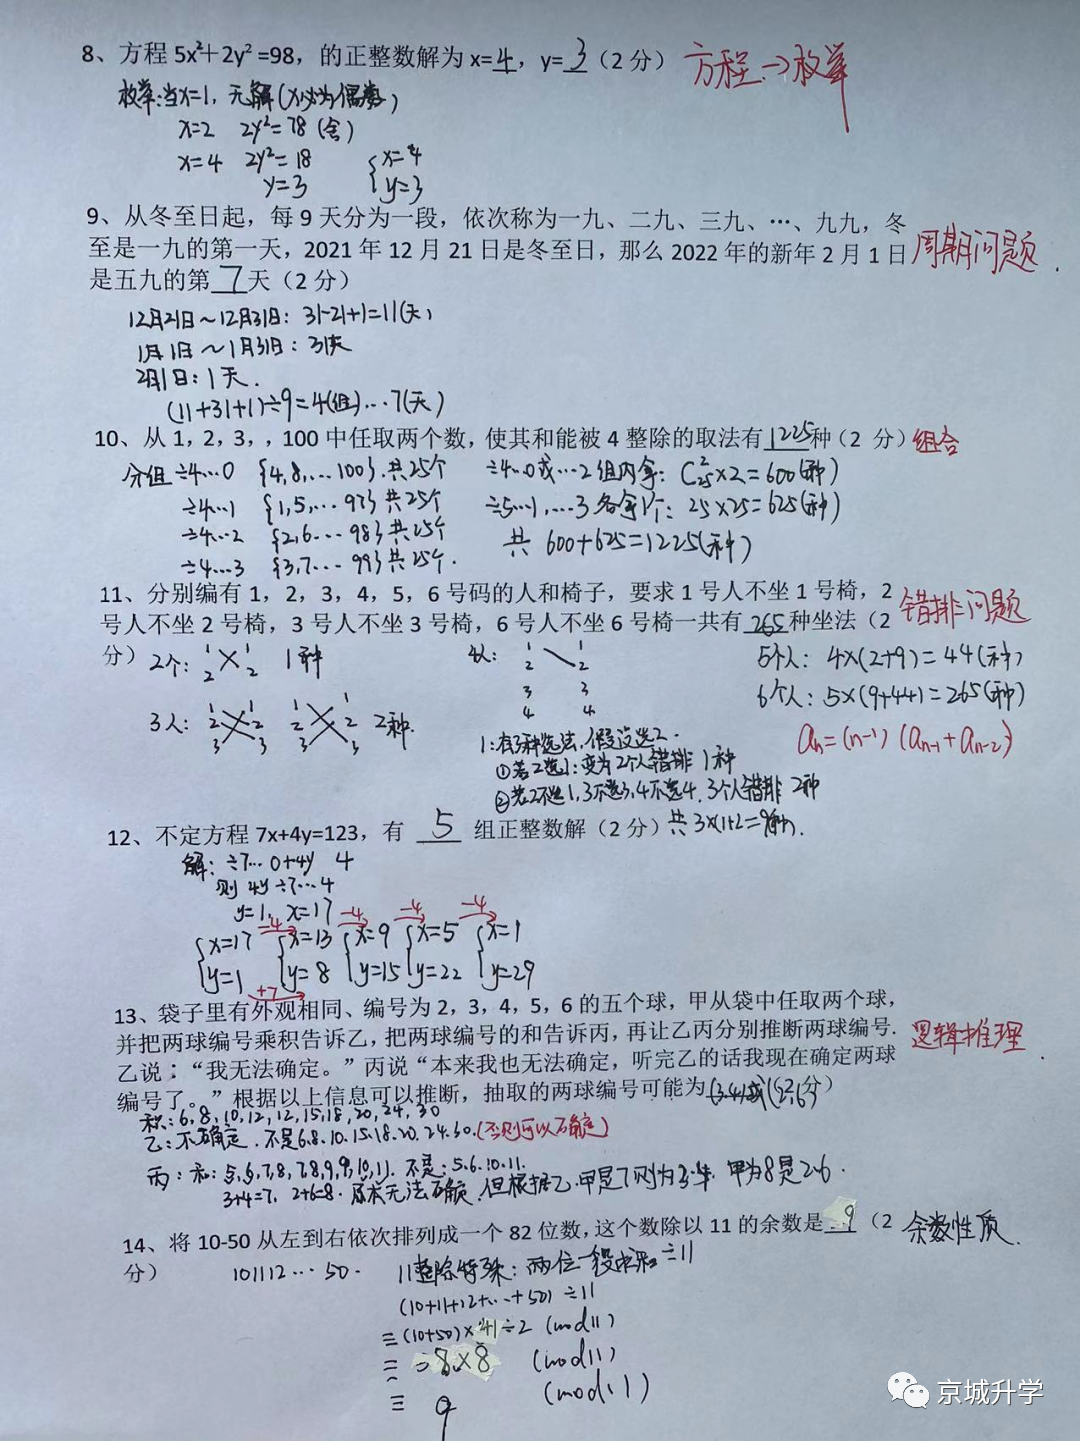 8、方程 5x²+2y² =98，的正整数解为 x=4，y=3（2 分） 方程→枚举
枚举:当x=1，无解(x必为偶数)
x=2 2y²=78 (舍)
x=4 2y²=18 {x=4
y=3 y=3
9、从冬至日起，每 9 天分为一段，依次称为一九、二九、三九、…、九九，冬
至是一九的第一天，2021 年 12 月 21 日是冬至日，那么 2022 年的新年 2 月 1 日 周期问题.
是五九的第 7 天（2 分）
12月21日～12月31日: 31-21+1=11(天)
1月1日～1月31日: 31天
2月1日: 1天.
(11+31+1)÷9=4(组)…7(天)
10、从 1，2，3，，100 中任取两个数，使其和能被 4 整除的取法有 1225 种（2 分） 组合
分组 ÷4…0 {4,8,…100}.共25个 ÷4…0或…2组内拿: C²₂₅×2=600(种)
÷4…1 {1,5,…97}共25个 ÷5…1,…3各拿1个: 25×25=625(种)
÷4…2 {2,6…98}共25个 共 600+625=1225(种)
÷4…3 {3,7…99}共25个.
11、分别编有 1，2，3，4，5，6 号码的人和椅子，要求 1 号人不坐 1 号椅，2 错排问题
号人不坐 2 号椅，3 号人不坐 3 号椅，6 号人不坐 6 号椅一共有 265 种坐法（2
分） 2个: 1 1 2 2 1种 4人: 1 1 2 2 3 3 4 4 5个人: 4×(2+9)=44(种)
6个人: 5×(9+44)=265(种)
3人: 1 1 2 2 3 3 1 1 2 2 3 3 2种. aₙ=(n-1)(aₙ₋₁+aₙ₋₂)
1:有3种选法,假设选2.
①若2选1:变为2个人错排 1种
②若2不选1,3不选3,4不选4.3个人错排 2种
12、不定方程 7x+4y=123，有 5 组正整数解（2 分） 共3×(1+2)=9(种).
解: ÷7…0+4y 4
则 4y÷7…4
y=1, x=17
{x=17 -4 {x=13 -4 {x=9 -4 {x=5 -4 {x=1
y=1 +7 y=8 y=15 y=22 y=29
13、袋子里有外观相同、编号为 2，3，4，5，6 的五个球，甲从袋中任取两个球，
并把两球编号乘积告诉乙，把两球编号的和告诉丙，再让乙丙分别推断两球编号. 逻辑推理.
乙说：“我无法确定。”丙说“本来我也无法确定，听完乙的话我现在确定两球
编号了。”根据以上信息可以推断，抽取的两球编号可能为(3,4)或(2,6)（2分）
积:6,8,10,12,12,15,18,20,24,30
乙:不确定.不是6.8.10.15.18.20.24.30.(否则可以确定)
丙:和:5,6,7,8,7,8,9,9,10,11.不是:5.6.10.11.
3+4=7, 2+6=8.原本无法确定,但根据乙.甲是7则为3.4.甲为8是2.6.
14、将 10-50 从左到右依次排列成一个 82 位数，这个数除以 11 的余数是 9（2 余数性质.
分） 101112…50. 11整除特殊: 两位一段求和÷11
(10+11+12+…+50)÷11
≡(10+50)×41÷2 (mod11)
≡8×8 (mod11)
≡ 9 (mod11)
京城升学